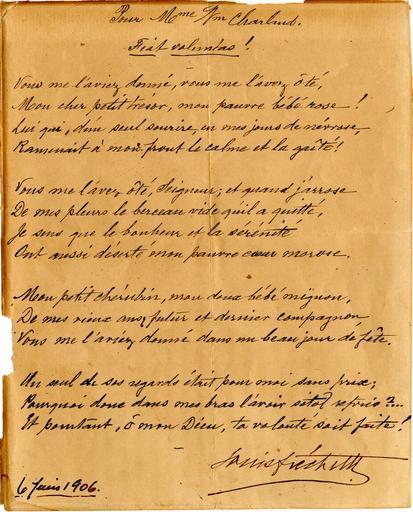 Pour Mme Wm Charland.
Fiat voluntas!
Vous me l'aviez donné, vous me l'avez ôté,
Mon cher petit trésor, mon pauvre bébé rose!
Lui qui, d'un seul sourire, en mes jours de névrose,
Ramenait à mon front le calme et la gaîté!
Vous me l'avez ôté, Seigneur; et quand j'arrose
De mes pleurs le berceau vide qu'il a quitté,
Je sens que le bonheur et la sérénité
Ont aussi déserté mon pauvre cœur morose.
Mon petit chérubin, mon doux bébé mignon,
De mes vieux ans, futur et dernier compagnon
Vous me l'aviez donné dans un beau jour de fête.
Un seul de ses regards était pour moi sans prix;
Pourquoi donc dans mes bras l'avoir sitôt repris?...
Et pourtant, ô mon Dieu, ta volonté soit faite!
Louis Fréchette
6 Juin 1906.